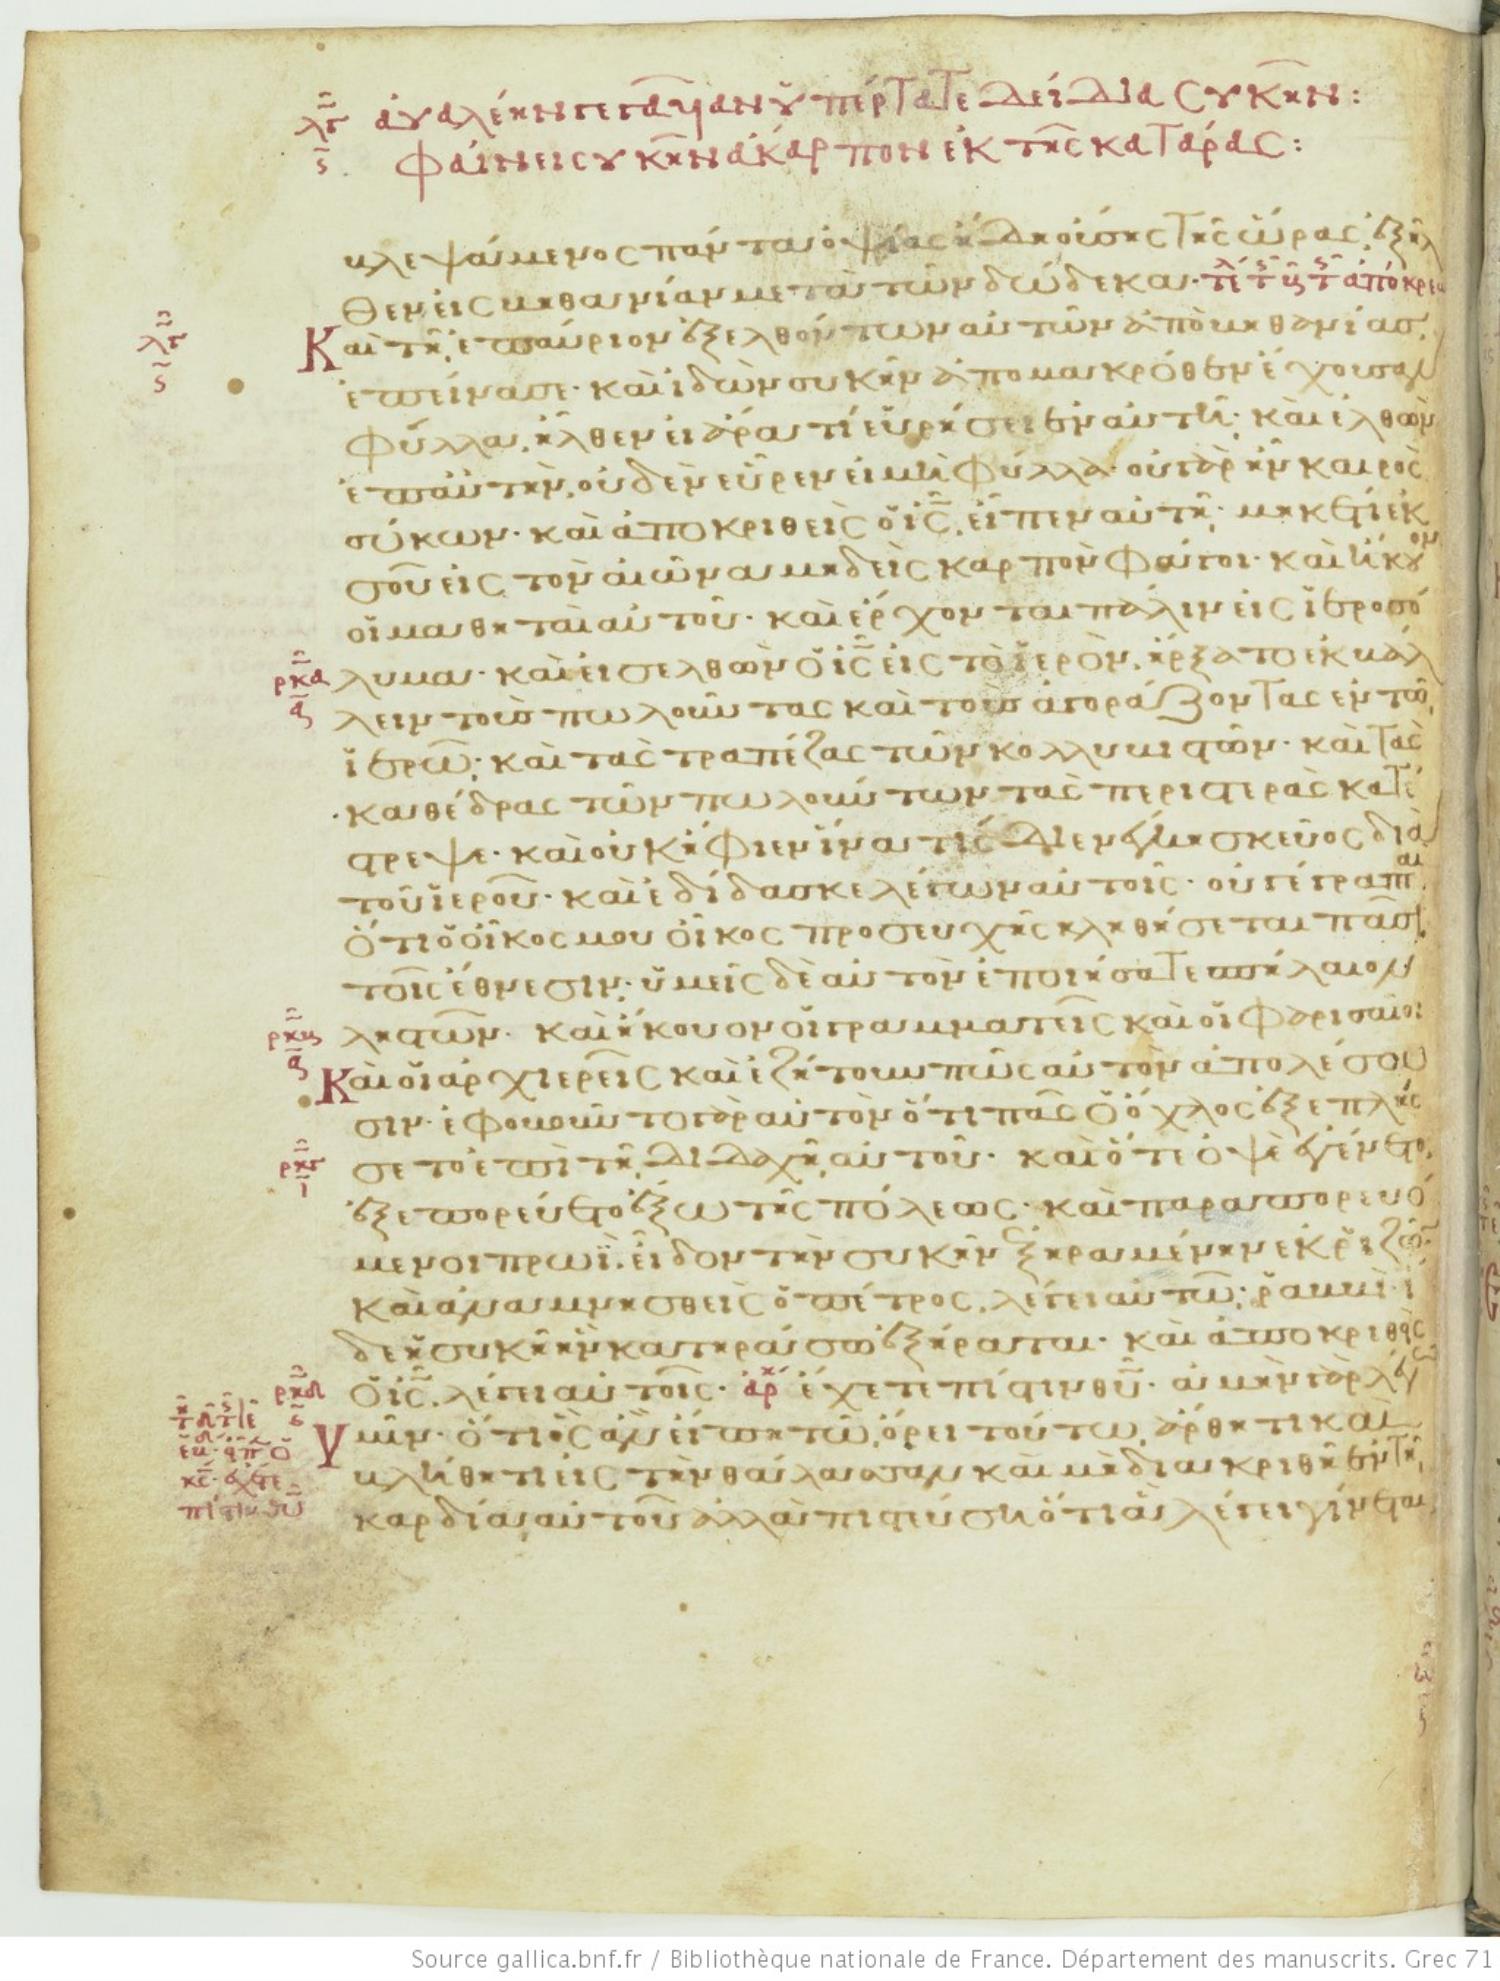 λγ αὐαλέην γεγαυῖαν ὑπέρτατε δείδια συκῆν:
ϛ φαίνει συκῆν ἄκαρπον ἐκ τῆς κατάρας:
βλεψάμενος πάντα ὀψίας ἤδη οὔσης τῆς ὥρας, ἐξῆλ
θεν εἰς βηθανίαν μετὰ τῶν δώδεκα·
λγ ϛ Καὶ τῇ ἐπαύριον ἐξελθόντων αὐτῶν ἀπὸ βηθανίας,
ἐπείνασε· καὶ ἰδὼν συκῆν ἀπο μακρόθεν ἔχουσαν
φύλλα, ἦλθεν εἰ ἄρα τί εὑρήσει ἐν αὐτῇ· καὶ ἐλθὼν
ἐπ αὐτὴν, οὐδὲν εὗρεν εἰ μὴ φύλλα· οὐ γὰρ ἦν καιρὸς
σύκων· καὶ ἀποκριθεὶς ὁ ἰς, εἶπεν αὐτῇ· μηκέτι ἐκ
σοῦ εἰς τὸν αἰῶνα μηδεὶς καρπὸν φάγοι· καὶ ἤκουον
οἱ μαθηταὶ αὐτοῦ· καὶ ἔρχονται πάλιν εἰς ἱεροσό
ρκα α λυμα· καὶ εἰσελθὼν ὁ ἰς εἰς τὸ ἱερὸν, ἤρξατο ἐκβάλ
λειν τοὺς πωλοῦντας καὶ τοὺς ἀγοράζοντας ἐν τῷ
ἱερῷ· καὶ τὰς τραπέζας τῶν κολλυβιστῶν· καὶ τὰς
καθέδρας τῶν πωλούντων τὰς περιστερὰς κατέ
στρεψε· καὶ οὐκ ἤφιεν ἵνα τίς διενέγκη σκεῦος διὰ
τοῦ ἱεροῦ· καὶ ἐδίδασκε λέγων αὐτοῖς· οὐ γέγραπται
ὅτι ὁ οἶκος μου οἶκος προσευχῆς κληθήσεται πᾶσι
τοῖς ἔθνεσιν· ὑμεῖς δὲ αὐτὸν ἐποιήσατε σπήλαιον
ρκβ α λῃστῶν· καὶ ἤκουον οἱ γραμματεῖς καὶ οἱ φαρισαῖοι
Καὶ οἱ ἀρχιερεῖς καὶ ἐζήτουν πῶς αὐτὸν ἀπολέσου
σιν· ἐφοβοῦντο γὰρ αὐτὸν ὅτι πᾶς ὁ ὄχλος ἐξεπλήσ
ρκγ ι σετο ἐπὶ τῇ διδαχῇ αὐτοῦ· καὶ ὅτε ὀψὲ ἐγένετο,
ἐξεπορεύετο ἔξω τῆς πόλεως· καὶ παραπορευό
μενοι πρωΐ, εἶδον τὴν συκῆν ἐξηραμένην ἐκ ῥιζῶν
καὶ ἀναμνησθεὶς ὁ πέτρος, λέγει αὐτῷ· ῥαββὶ ἴ
δε ἡ συκῆ ἣν κατηράσω ἐξήρανται· καὶ ἀποκριθεὶς
ρκδ ϛ ὁ ἰς, λέγει αὐτοῖς· ἀρ ἔχετε πίστιν θυ· ἀμὴν γὰρ λέγω
Ὑμῖν· ὅτι ὃς ἂν εἴπη τῷ ὄρει τούτω, ἄρθητι καὶ
βλήθητι εἰς τὴν θάλασσαν καὶ μὴ διακριθῇ ἐν τῇ
καρδίᾳ αὐτοῦ ἀλλὰ πιστεύσῃ ὅτι ἃ λέγει γίνεται,